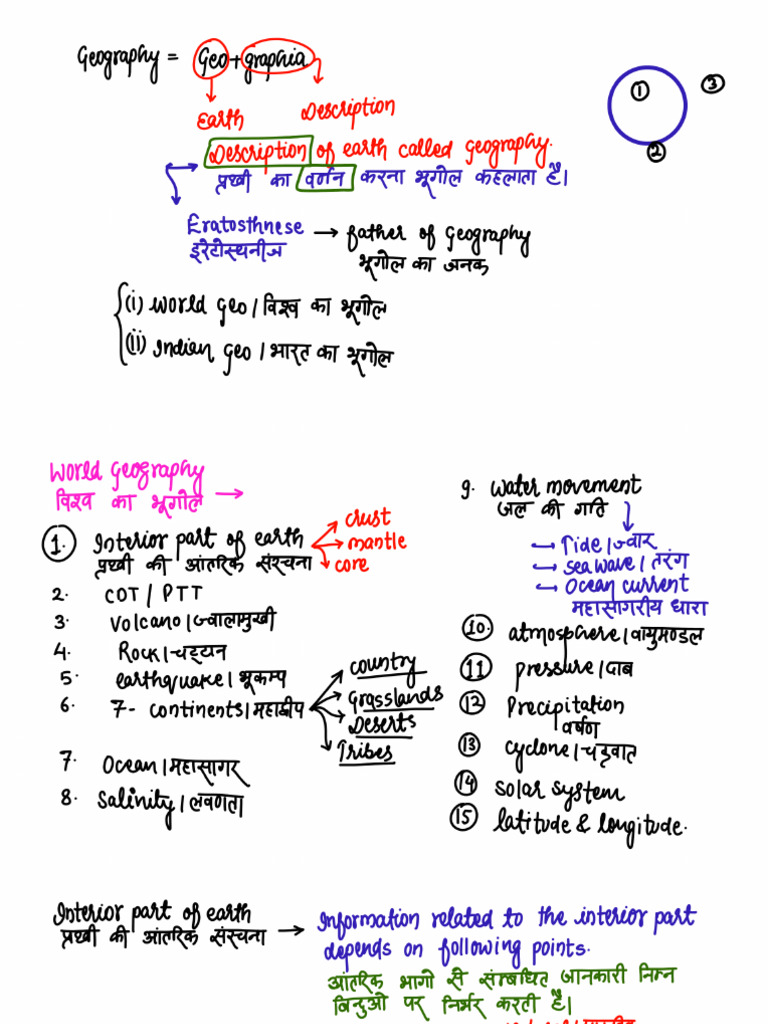 Geography = Geo + graphia
① ③
②
Earth Description
Description of earth called geography.
प्रथ्वी का वर्णन करना भूगोल कहलाता है।
Eratosthnese → father of Geography
इरेटोस्थनीज भूगोल का जनक
(i) World Geo / विश्व का भूगोल
(ii) Indian Geo / भारत का भूगोल
World Geography
विश्व का भूगोल →
1. Interior part of earth
प्रथ्वी की आंतरिक संरचना
crust
mantle
core
2. COT / PTT
3. Volcano / ज्वालामुखी
4. Rock / चट्टान
5. earthquake / भूकम्प
6. 7 - continents / महाद्वीप
country
Grasslands
Deserts
Tribes
7. Ocean / महासागर
8. Salinity / लवणता
9. Water movement
जल की गति
→ Tide / ज्वार
→ Sea wave / तरंग
→ Ocean current
महासागरीय धारा
10. atmosphere / वायुमण्डल
11 pressure / दाब
12 Precipitation
वर्षण
13 cyclone / चक्रवात
14 solar system
15 latitude & longitude.
Interior part of earth
प्रथ्वी की आंतरिक संरचना →
Information related to the interior part
depends on following points.
आंतरिक भागो से सम्बंधित जानकारी निम्न
बिन्दुओ पर निर्भर करती है।